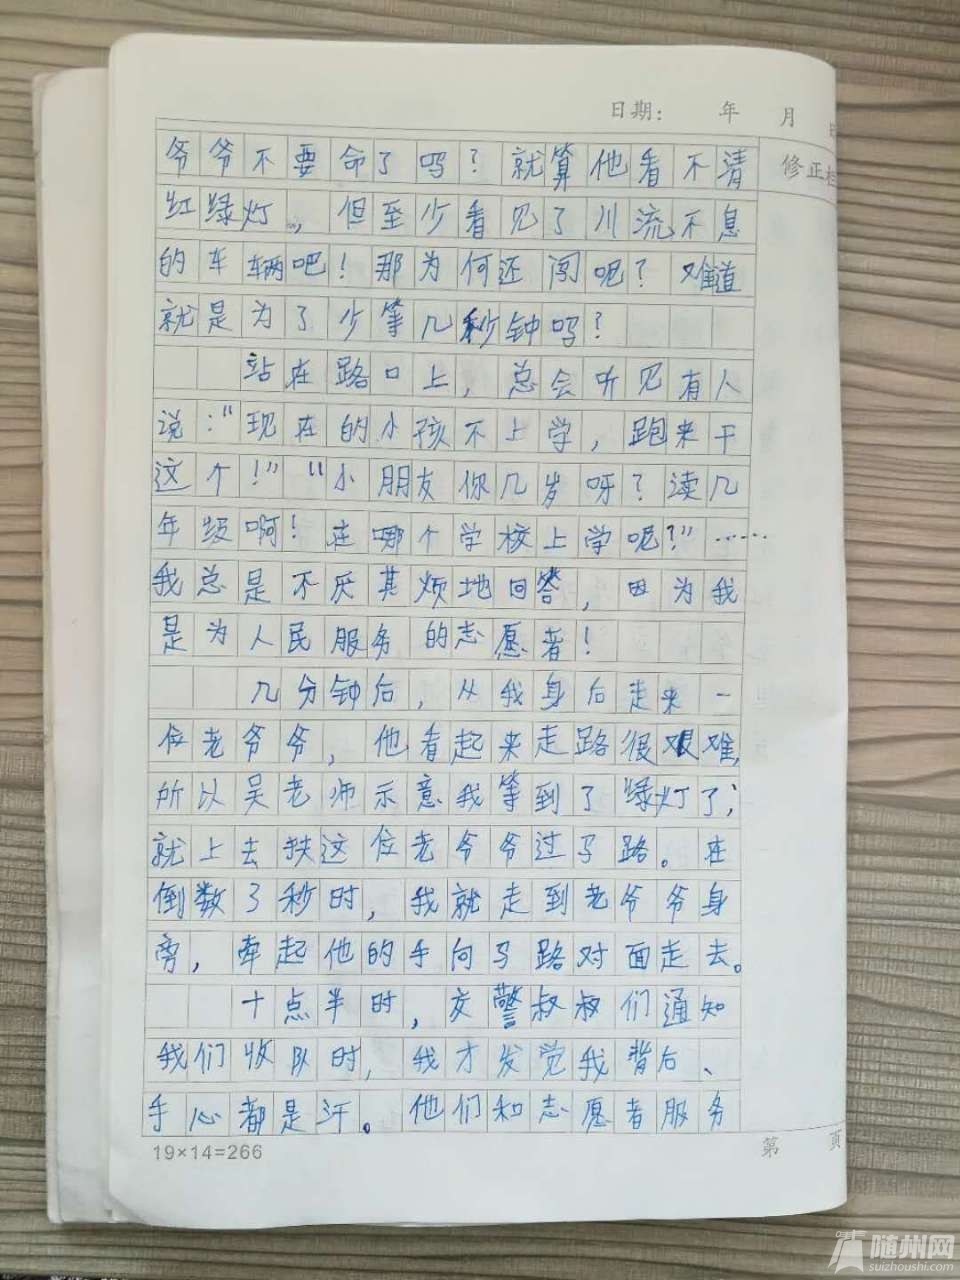 日期: 年 月
修正栏
爷爷不要命了吗？就算他看不清
红绿灯，但至少看见了川流不息
的车辆吧！那为何还闯呢？难道
就是为了少等几秒钟吗？
站在路口上，总会听见有人
说：“现在的小孩不上学，跑来干
这个！”“小朋友你几岁呀？读几
年级啊！在哪个学校上学呢？”……
我总是不厌其烦地回答，因为我
是为人民服务的志愿者！
几分钟后，从我身后走来一
位老爷爷，他看起来走路很艰难，
所以吴老师示意我等到了绿灯了；
就上去扶这位老爷爷过马路。在
倒数了秒时，我就走到老爷爷身
旁，牵起他的手向马路对面走去。
十点半时，交警叔叔们通知
我们收队时，我才发觉我背后、
手心都是汗。他们和志愿者服务
19×14=266
第 页
随州网
suizhoushi.com